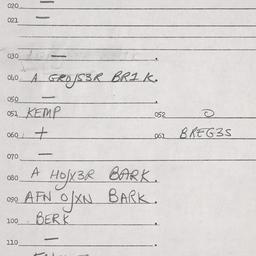 020 —
021 —
030 — .
040 A GRO/S3R BR1K.
050 — .
051 KEMP 052 O
060 + 061 BREG3S
070 —
080 A HO/X3R BARK.
090 AFN O/XN BARK.
100 BERK .
110 — .